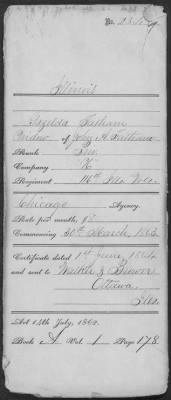 No.
Illinois
Widow of John A.
Rank
Company "K"
Regiment Ills Vols.
Chicago Agency.
Rate per month, $8
Commencing 30th March, 1863
Certificate dated 1st June, 1864
and sent to Walker & Brewer
Ottawa,
Ills.
Act 14th July, 1862.
Book A Vol. 1 Page 178